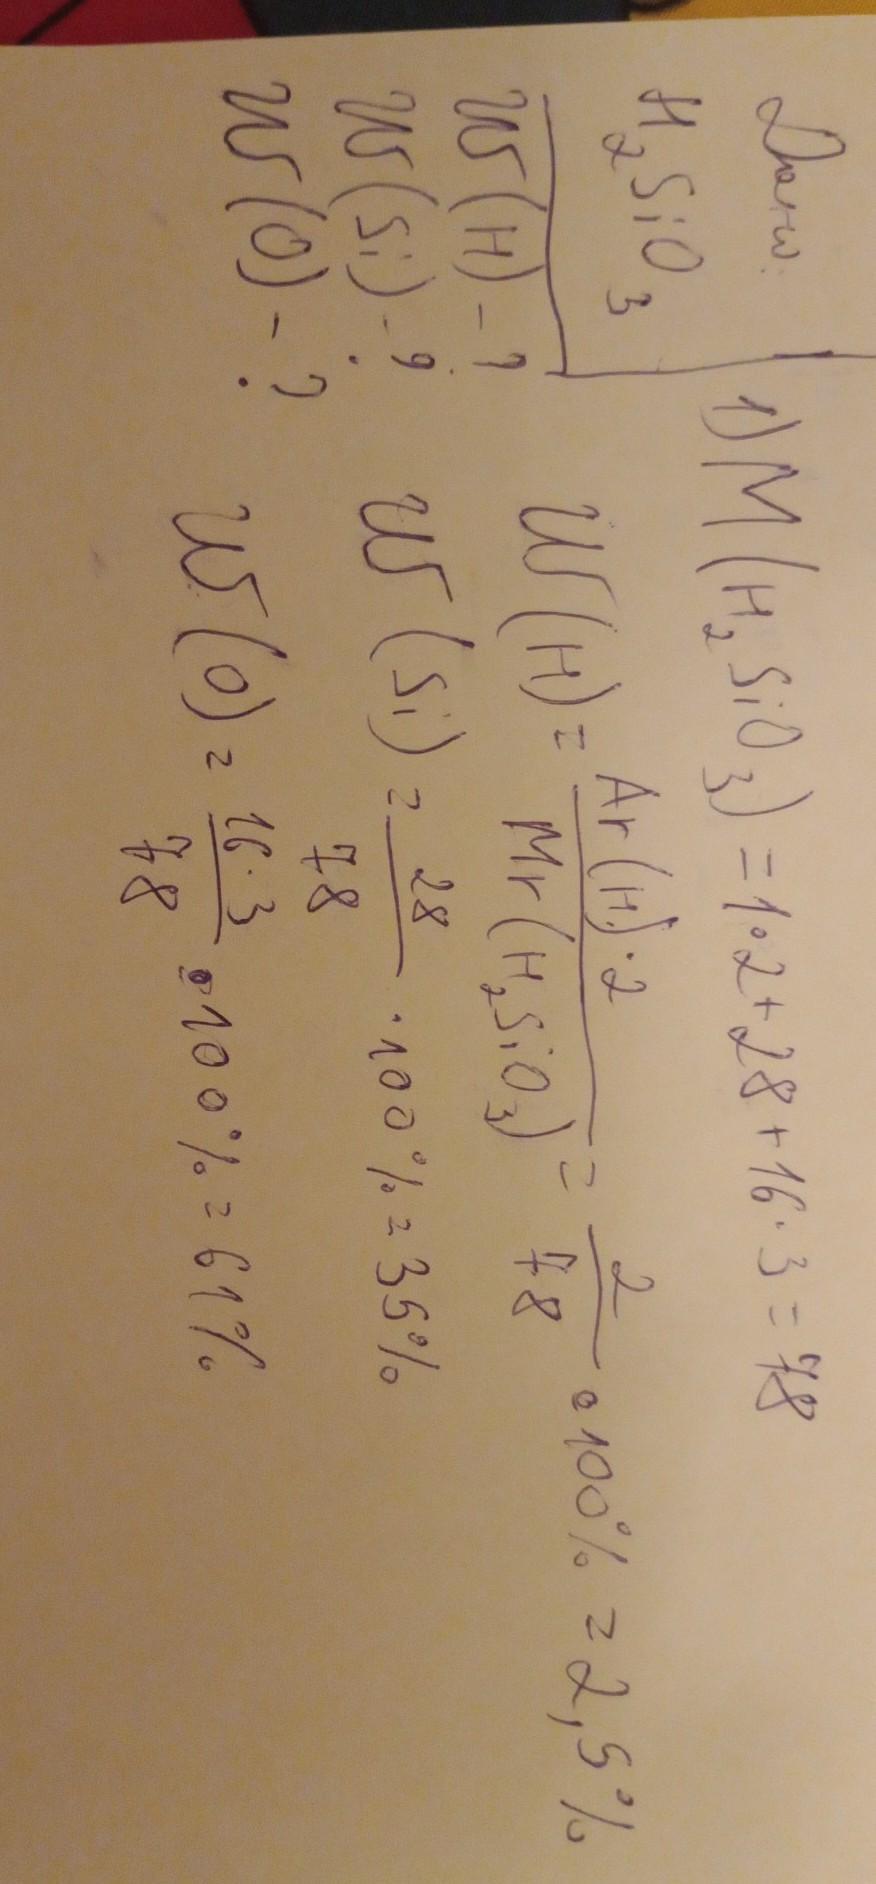 Дано:
H₂SiO₃
W(H) - ?
W(Si) - ?
W(O) - ?
1) M(H₂SiO₃) = 1·2+28+16·3 = 78
W(H) = Ar(H)·2 / Mr(H₂SiO₃) = 2/78 · 100% = 2,5%
W(Si) = 28/78 · 100% = 35%
W(O) = 16·3/78 · 100% = 61%